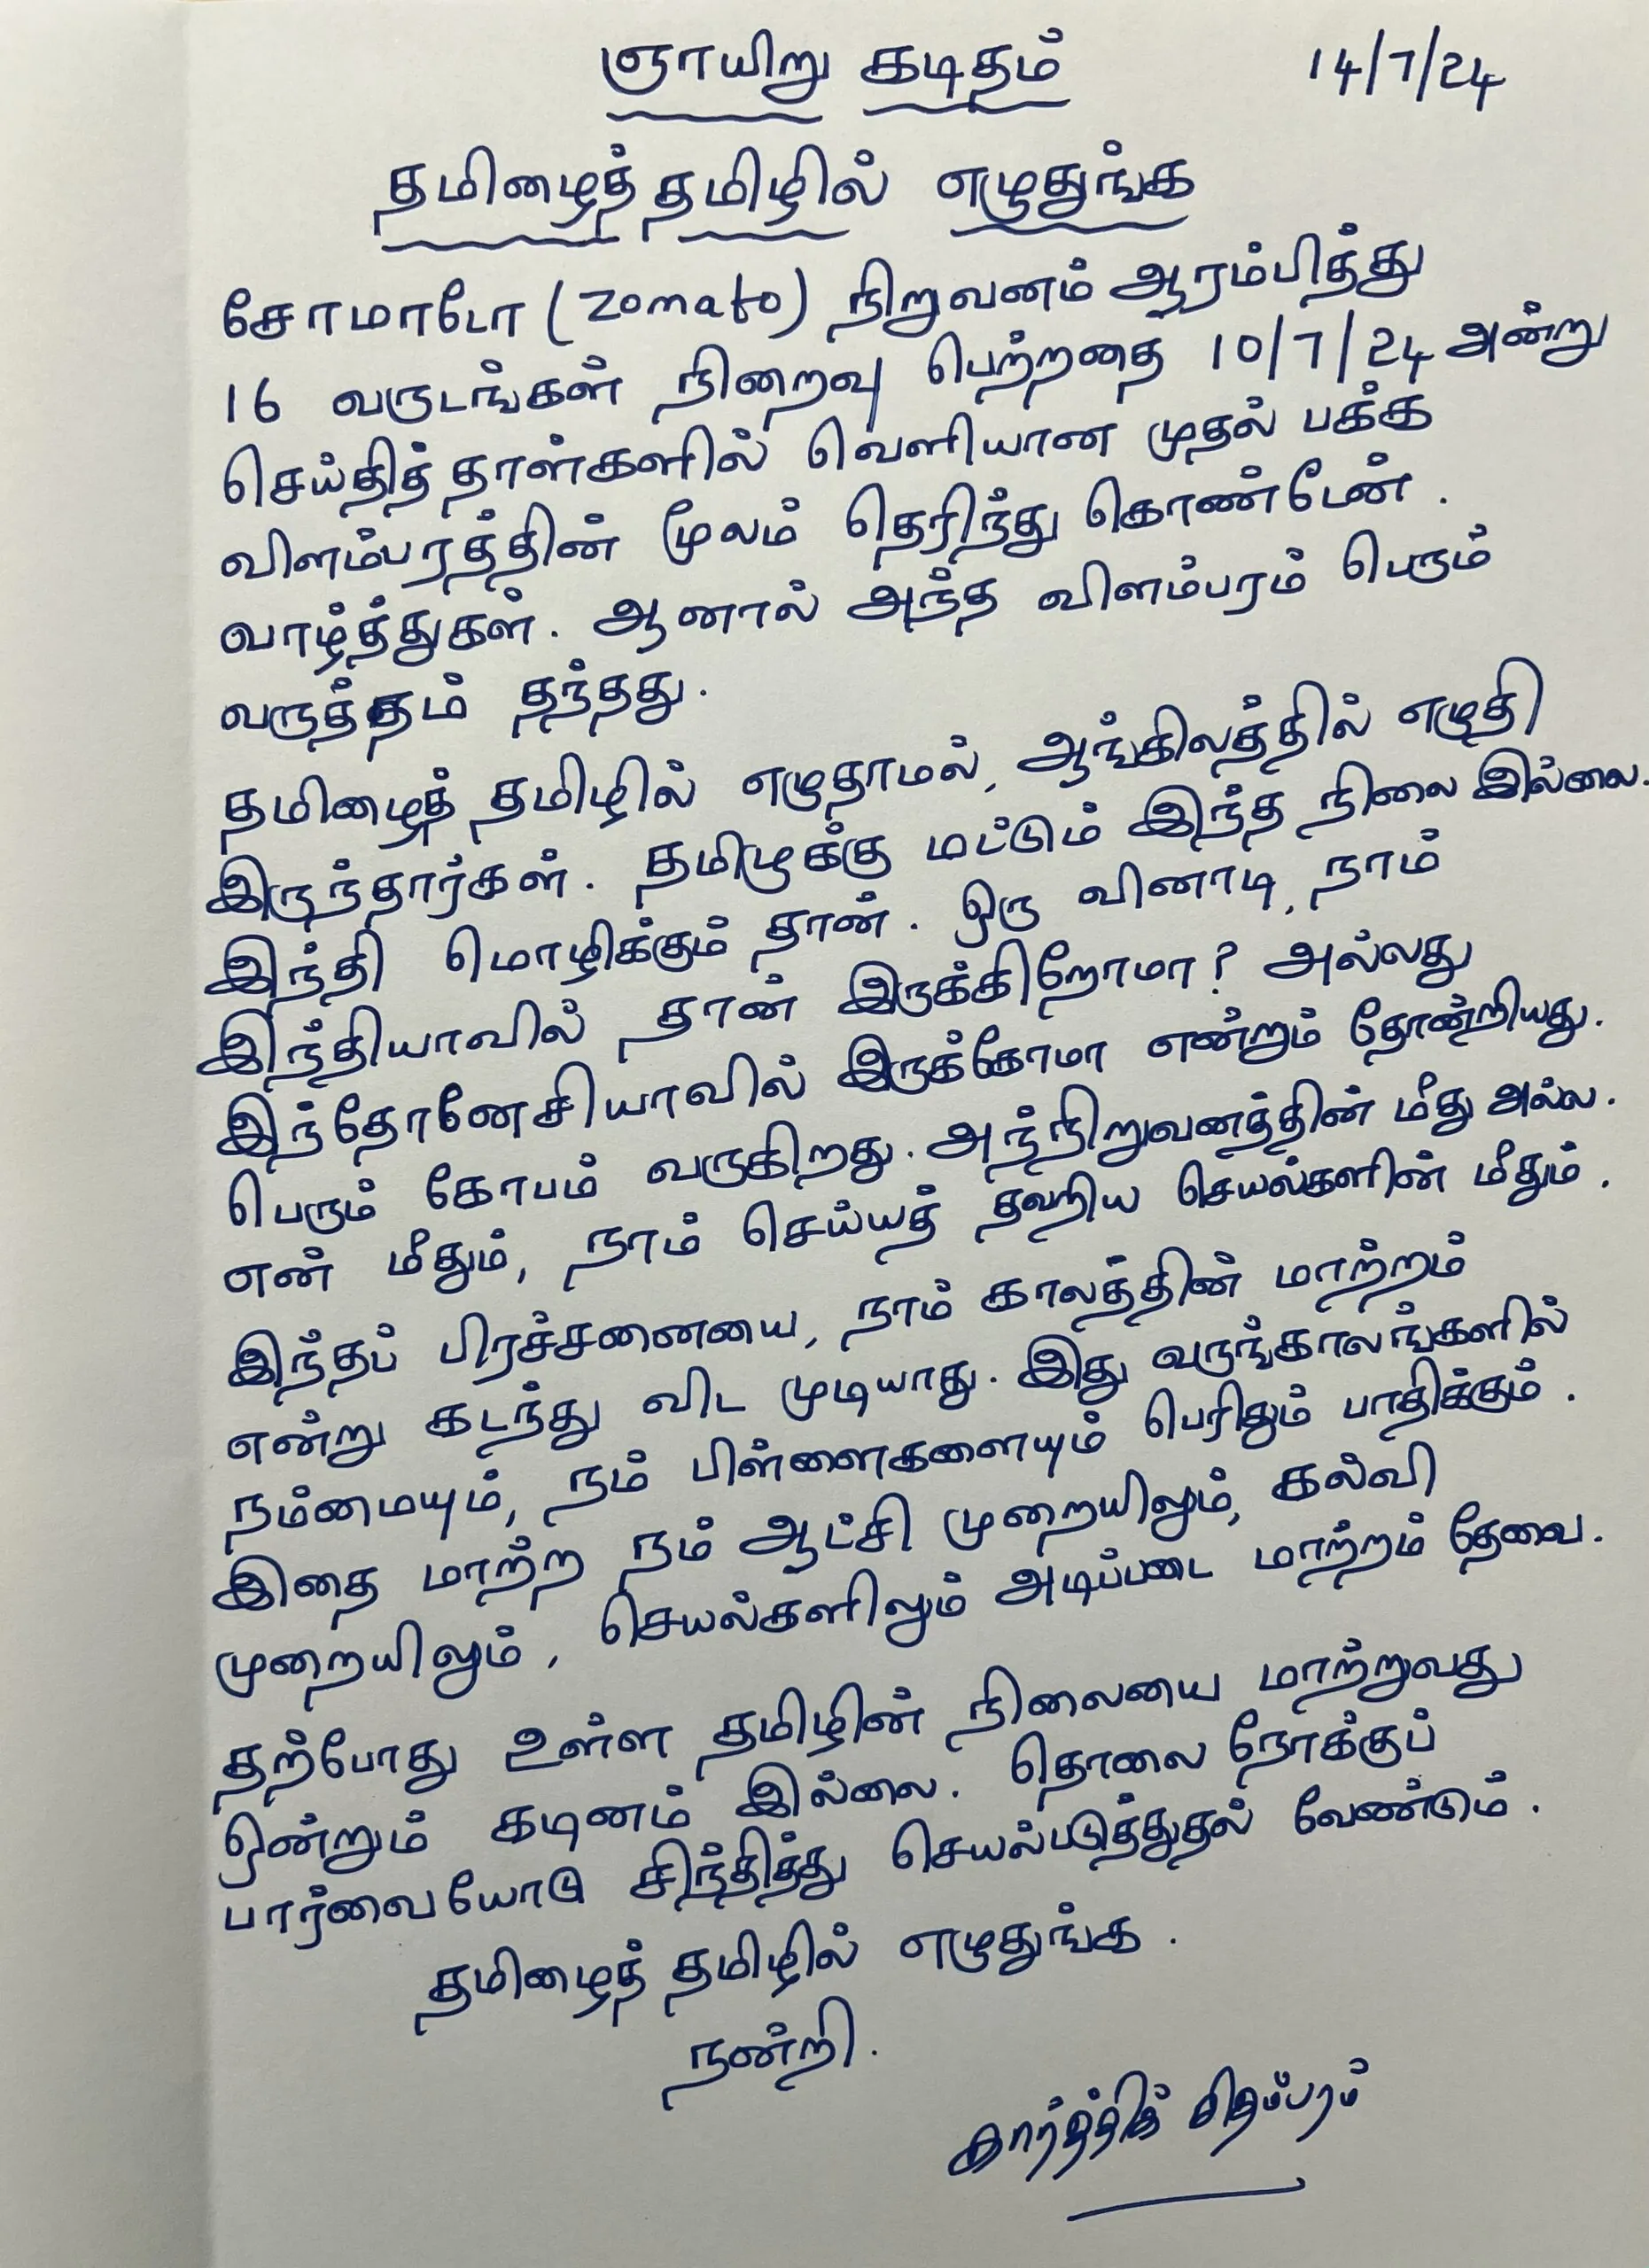 ஞாயிறு கடிதம் 14/7/24
தமிழைத் தமிழில் எழுதுங்க
சோமாடோ (zomato) நிறுவனம் ஆரம்பித்து
16 வருடங்கள் நிறைவு பெற்றதை 10/7/24 அன்று
செய்தித் தாள்களில் வெளியான முதல் பக்க
விளம்பரத்தின் மூலம் தெரிந்து கொண்டேன்.
வாழ்த்துகள். ஆனால் அந்த விளம்பரம் பெரும்
வருத்தம் தந்தது.
தமிழைத் தமிழில் எழுதாமல், ஆங்கிலத்தில் எழுதி
இருந்தார்கள். தமிழுக்கு மட்டும் இந்த நிலை இல்லை.
இந்தி மொழிக்கும் தான். ஒரு வினாடி, நாம்
இந்தியாவில் தான் இருக்கிறோமா? அல்லது
இந்தோனேசியாவில் இருக்கோமா என்றும் தோன்றியது.
பெரும் கோபம் வருகிறது. அந்நிறுவனத்தின் மீது அல்ல.
என் மீதும், நாம் செய்யத் தவறிய செயல்களின் மீதும்.
இந்தப் பிரச்சனையை, நாம் காலத்தின் மாற்றம்
என்று கடந்து விட முடியாது. இது வருங்காலங்களில்
நம்மையும், நம் பிள்ளைகளையும் பெரிதும் பாதிக்கும்.
இதை மாற்ற நம் ஆட்சி முறையிலும், கல்வி
முறையிலும், செயல்களிலும் அடிப்படை மாற்றம் தேவை.
தற்போது உள்ள தமிழின் நிலையை மாற்றுவது
ஒன்றும் கடினம் இல்லை. தொலை நோக்குப்
பார்வையோடு சிந்தித்து செயல்படுத்துதல் வேண்டும்.
தமிழைத் தமிழில் எழுதுங்க.
நன்றி.
கார்த்திக் சிதம்பரம்